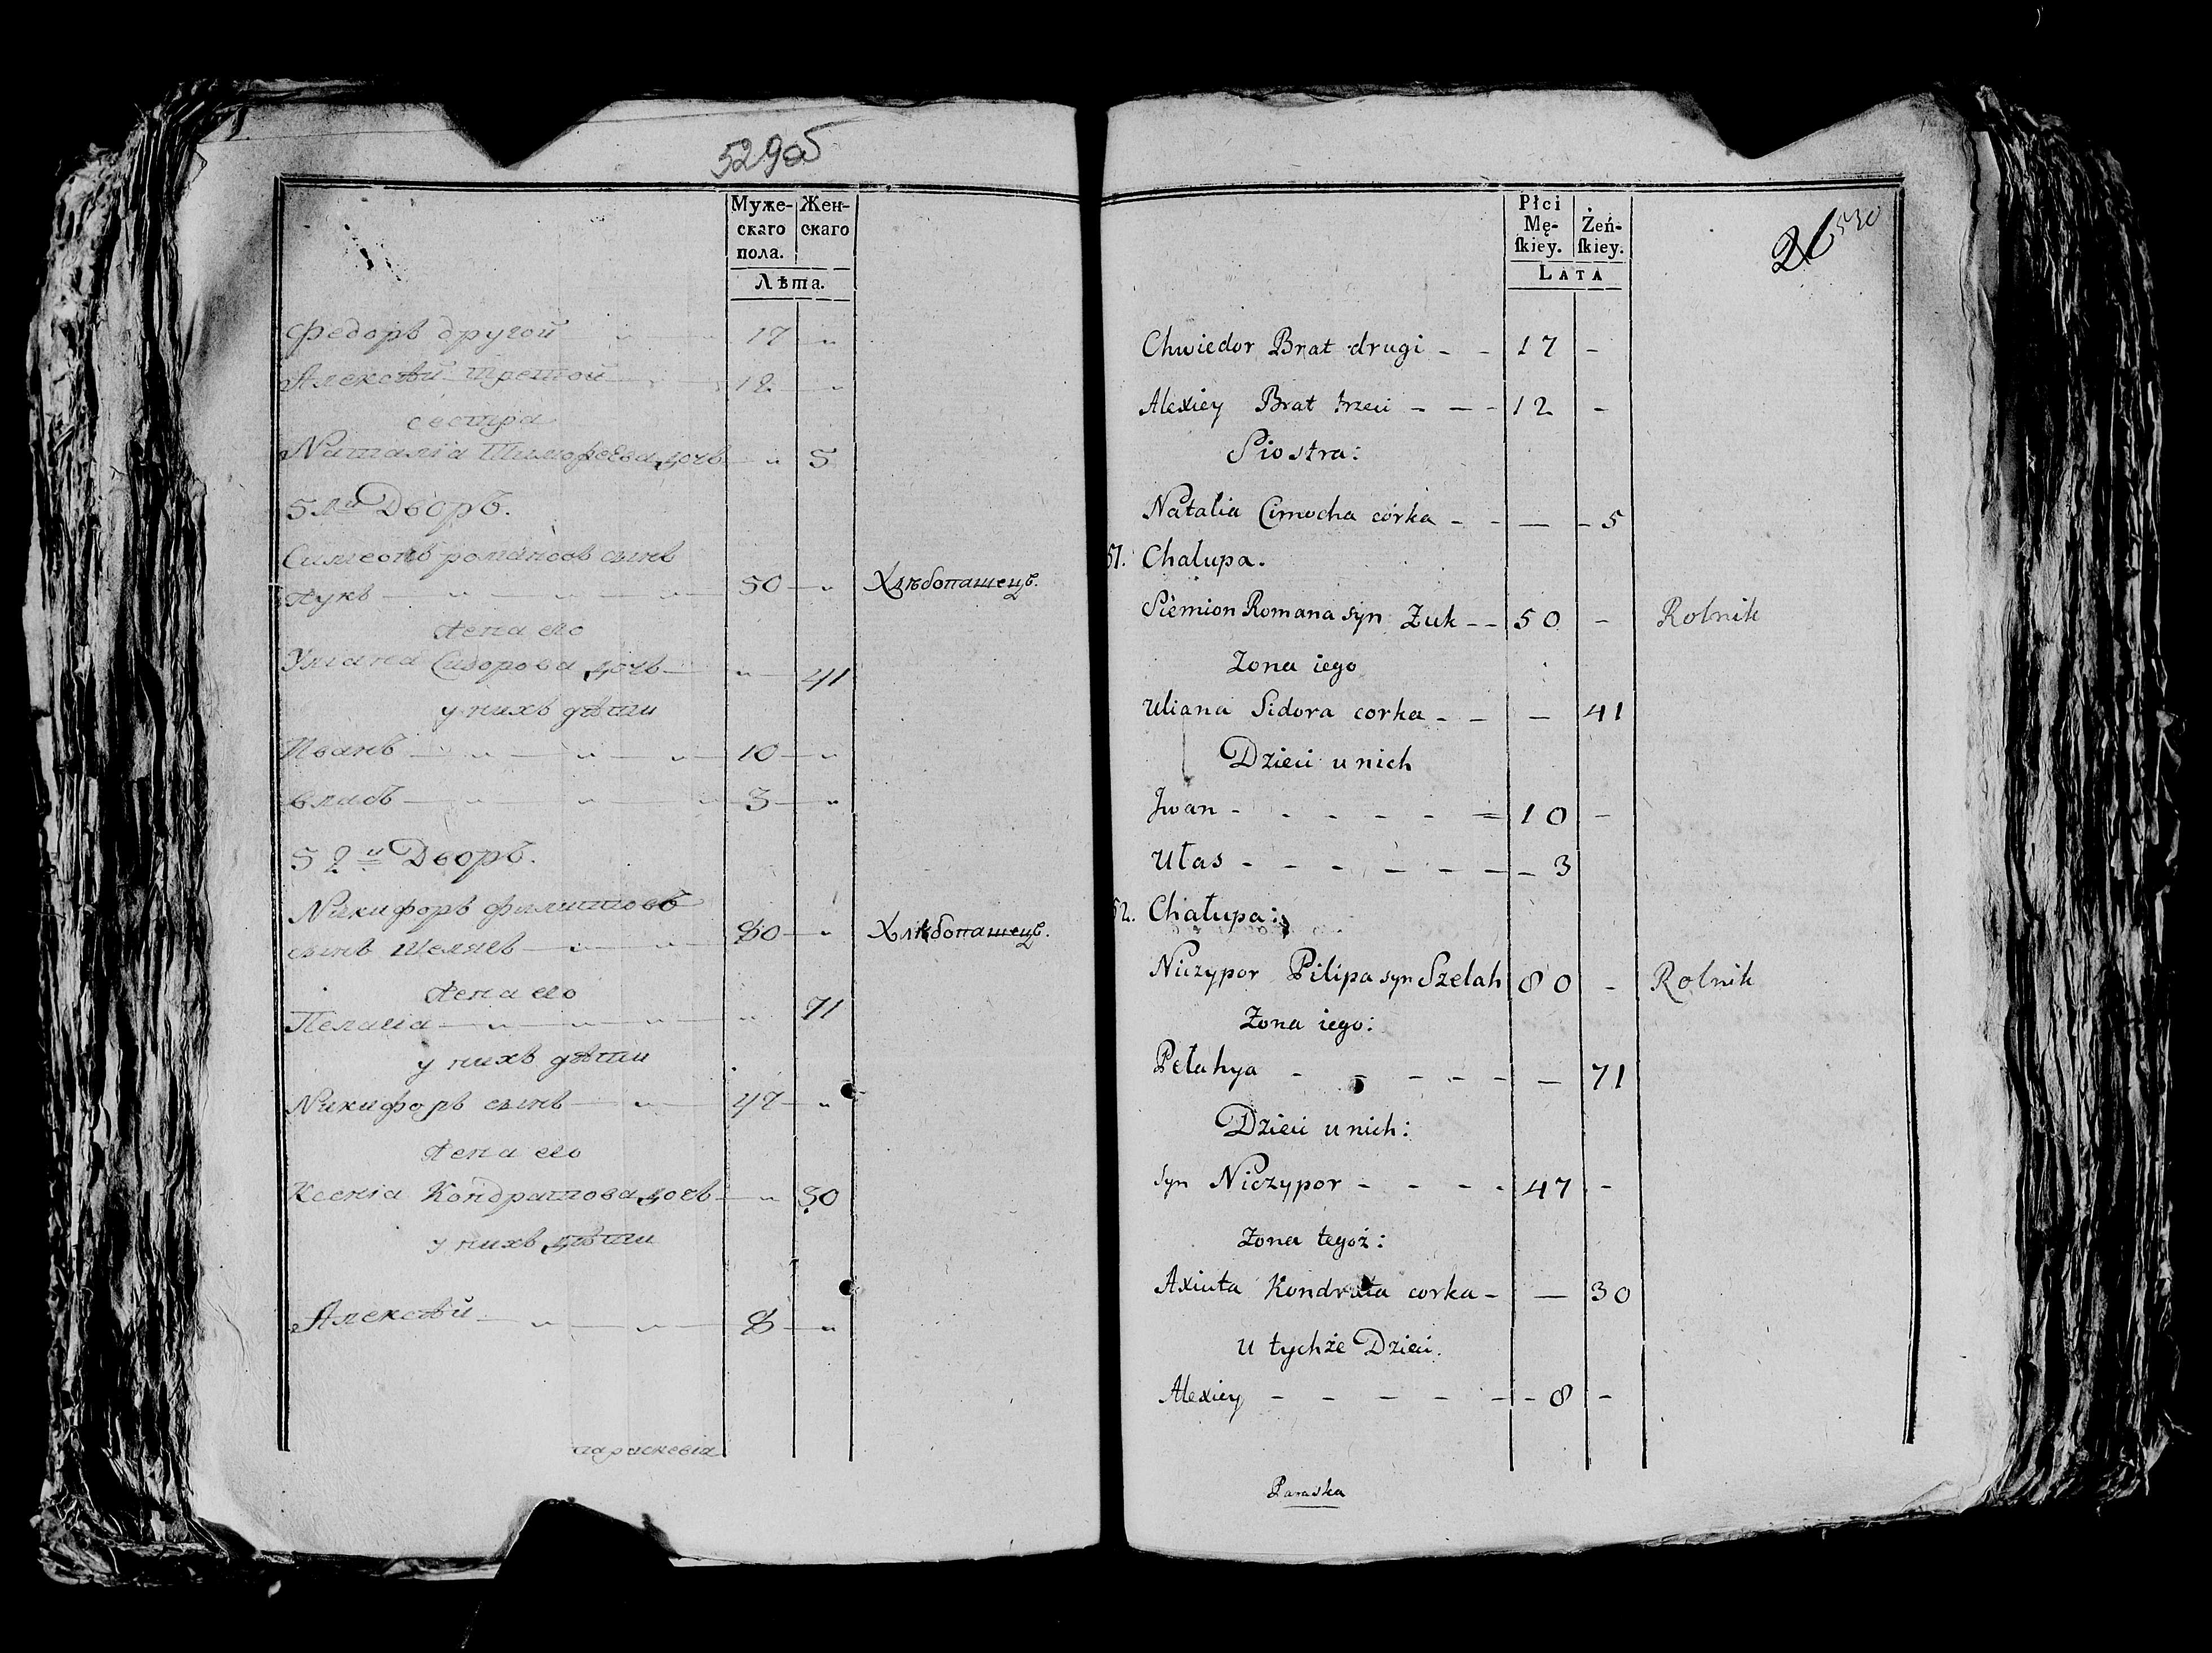 529об
Муже- Жен-
скаго скаго
пола.
Лѣта.
Федоръ другой 17 „
Алексѣй третой 12 „
сестра
Наталіа Тимофеева дочь „ 5
51й Дворъ.
Симеонъ романовъ сынъ
Жукъ 50 „ Хлѣбопашецъ.
Жена его
Уліана Сидорова дочь „ 41
у нихъ дѣти
Иванъ 10 „
власъ 3 „
52й Дворъ.
Никифоръ филиповъ
сынъ Шелягъ 80 „ Хлѣбопашецъ.
Жена его
Пелагіа „ 71
у нихъ дѣти
Никифоръ сынъ 47 „
Жена его
Ксеніа Кондратова дочь „ 30
у нихъ дѣти
Алексѣй 8 „
параскевіа
Płci
Mę- Żeń-
skiey. skiey.
LATA
26 530
Chwiedor Brat drugi - - 17 -
Alexiey Brat trzeci - - - 12 -
Siostra:
Natalia Cimocha córka - - — - 5
51. Chalupa.
Siemion Romana syn Żuk - - 50 - Rolnik
Żona iego
Uliana Sidora corka - - — 41
Dzieci u nich
Jwan - - - - - = 10 -
Ułas - - - - - - - 3
52. Chałupa:
Niczypor Pilipa syn Szelah 80 - Rolnik
Żona iego:
Pełahya - - - - - — 71
Dzieci u nich:
syn Niczypor - - - - 47 -
Żona tegoż:
Axiuta Kondrata corka - — 30
U tychże Dzieci.
Alexiey - - - - - - 8 -
Paraska